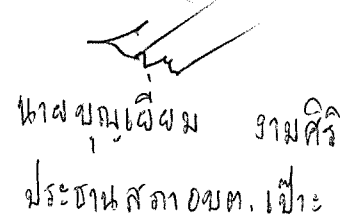 นายบุญเยี่ยม งามศิริ
ประธานสภาอบต.เป๊าะ